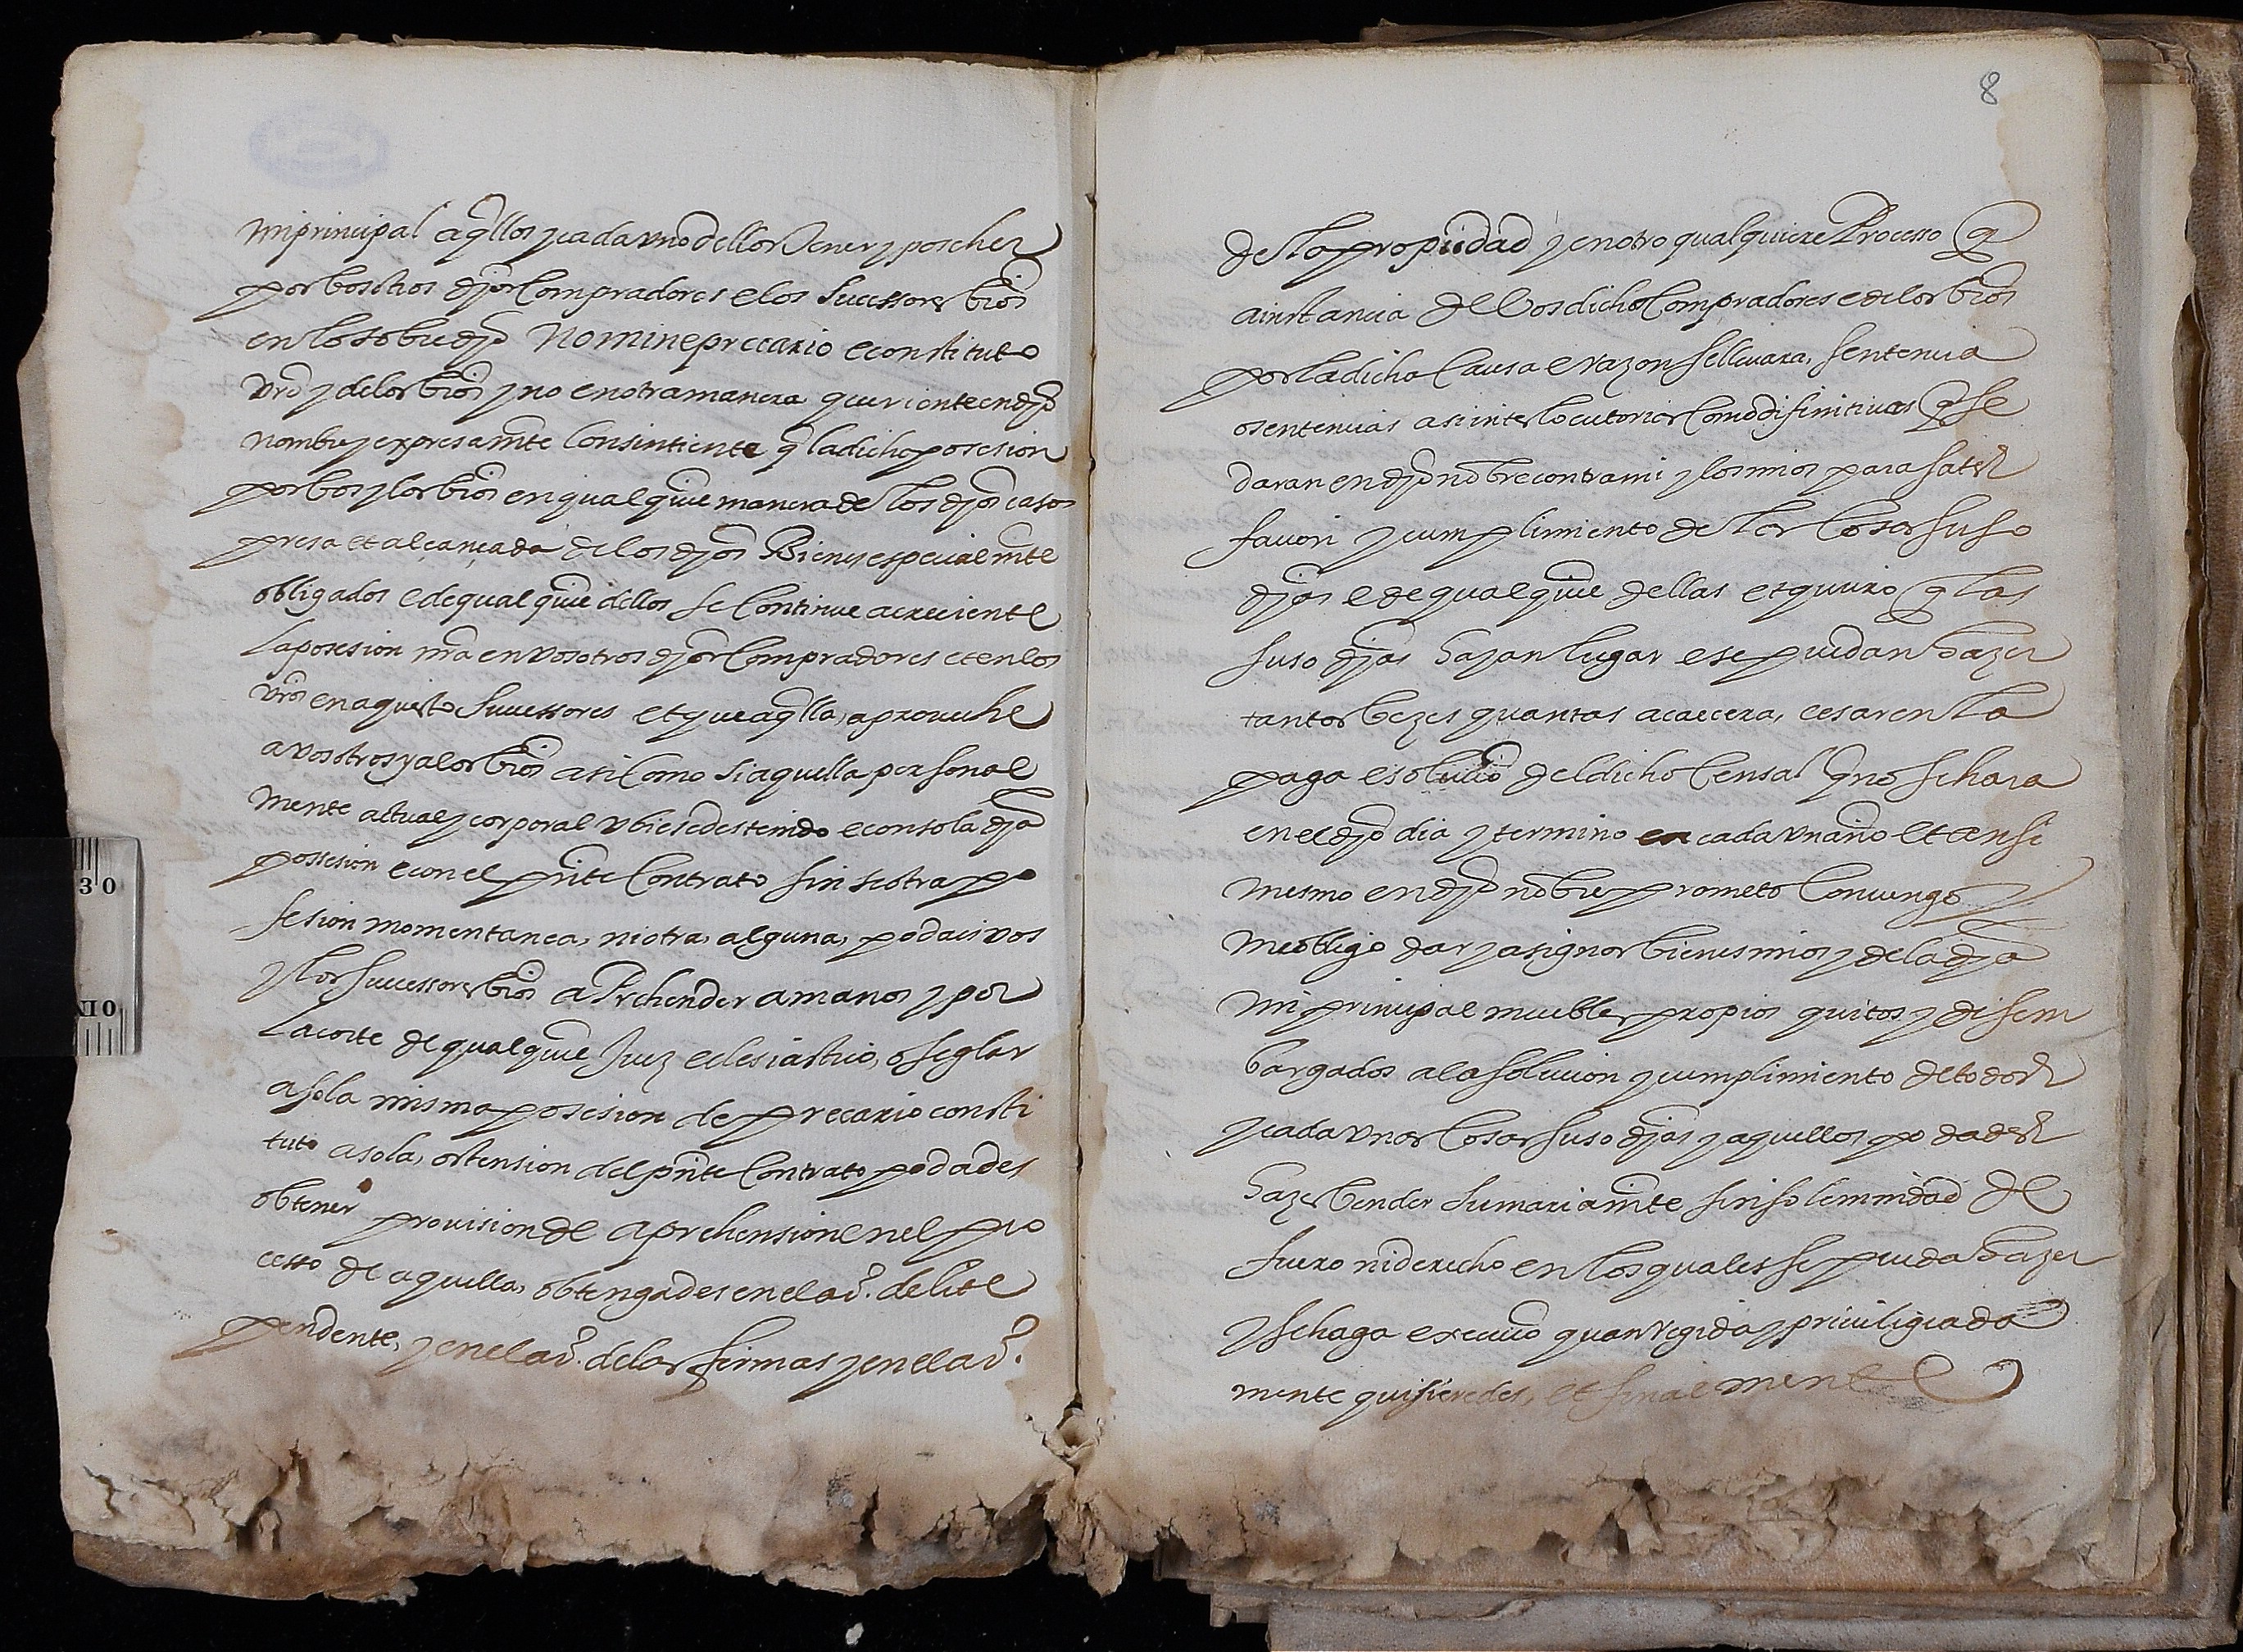 mi principal aqllos y cada uno dellos tener y posehez
por bosotros djos Compradores e los sucessores bros
en lo sobre djo nomine precario e constituto
vro y de los bros y no en otra manera queriente en djo
nombre y expresamte Consintiente q la dicha posesion
por bos y los bros en qualquie manera de los djos casos
presa et alcançada de los djos Bienes especialmte
obligados e de qualquie dellos se Continue acreciente
la posesion mia en vosotros djos Compradores et en los
vros en aquesto sucessores et que aqlla, aprouche
a vosotros y a los bros asi Como si aquella personal
mente actual y corporal ubiesedes tenido e con sola dja
possesion e con el pnte Contrato sin se otra po
sesion momentanea, ni otra, alguna, podais vos
y los sucessores bros aPrehender a manos y por
la corte de qualquie Juez eclesiastico, o seglar
a sola misma posesion de precario consti
tuto a sola, ostension del pnte Contrato podades
obtener prouision de aprehension en el pro
cesso de aquella, obtengades en el aro. de lite
pendente, y en el aro. de las firmas y en el aro.
8
de la propiedad y en otro qualquiere Processo q
a instancia de Vos dichos Compradores e de los bros
por la dicha Causa e razon se lleuara, sentencia
o sentencias asi interlocutorias Como difinitiuas q se
daran en djo nobre contra mi y los mios para satis
facion y cumplimiento de las Cosas suso
djas e de qualquie dellas et quiero q las
suso djas hayan lugar e se puedan hazer
tantas bezes quantas acaecera, cesar en la
paga e solucio del dicho Censal q no se hara
en el djo dia y termino en cada un año et ansi
mesmo en djo nobre prometo Conuengo y
me obligo dar y asignar bienes mios y de la dja
mi principal muebles propios quitos y desem
bargados a la solucion y cumplimiento de todas
y cada unas Cosas suso djas y aquellos podades
hazer bender sumariamte sin solemnidad de
fuero ni derecho en los quales se pueda hazer
y se haga execucio quan rigida y priuiligiada
mente quisieredes, et finalmente